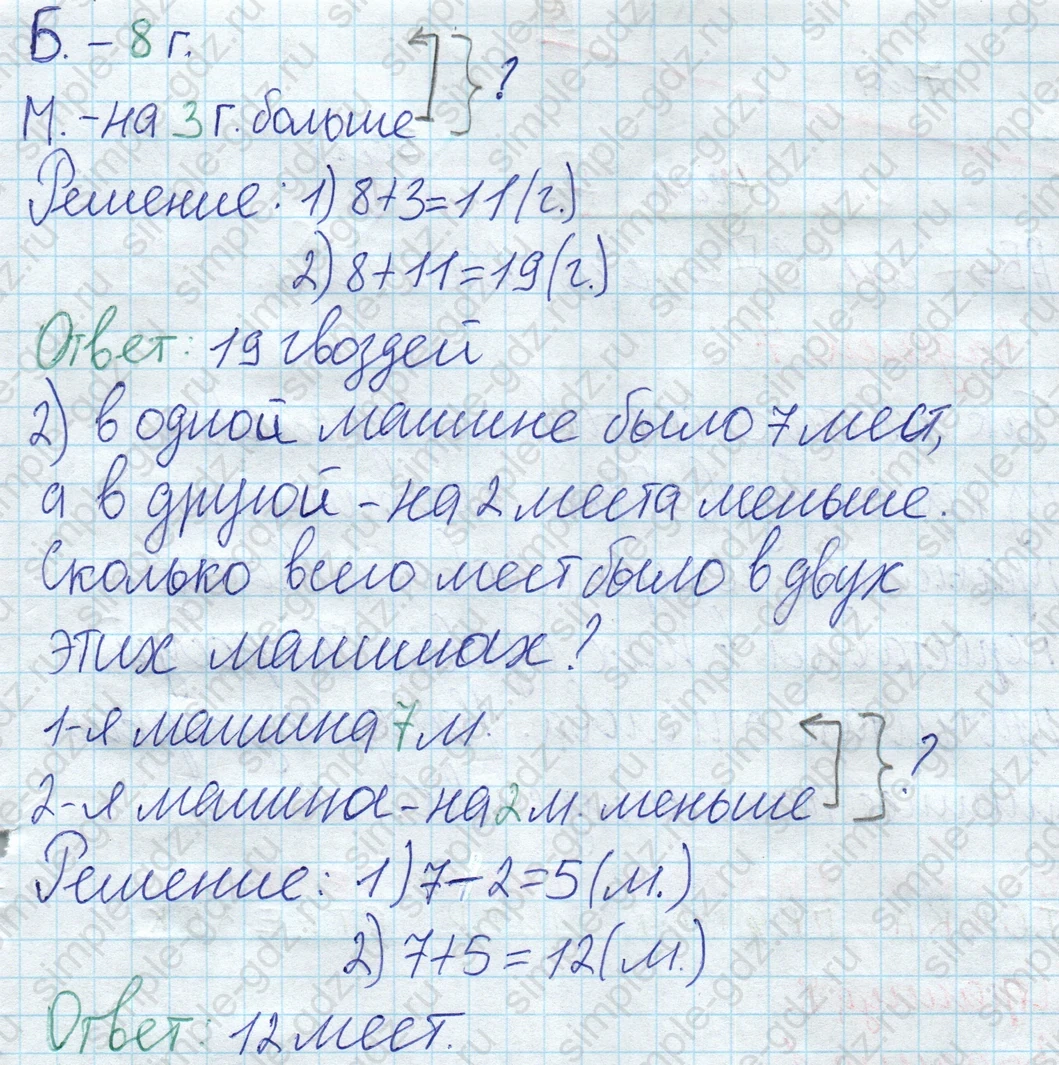 Б. – 8 г.
М. – на 3 г. больше ?
Решение: 1) 8+3=11(г.)
2) 8+11=19(г.)
Ответ: 19 гвоздей
2) в одной машине было 7 мест,
а в другой – на 2 места меньше.
Сколько всего мест было в двух
этих машинах?
1-я машина 7 м.
2-я машина – на 2 м. меньше ?
Решение: 1) 7–2=5(м.)
2) 7+5=12(м.)
Ответ: 12 мест.
simple-gdz.ru